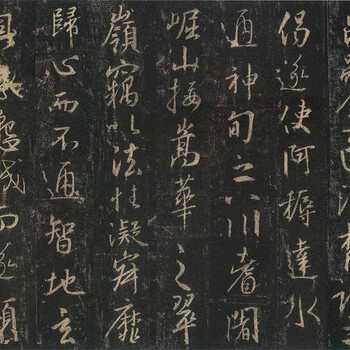 偈遂使阿耨達水
通神甸之八川耆闍
崛山接嵩華之翠
嶺竊以法性凝寂靡
歸心而不通智地玄
奧感懇誠而遂顯